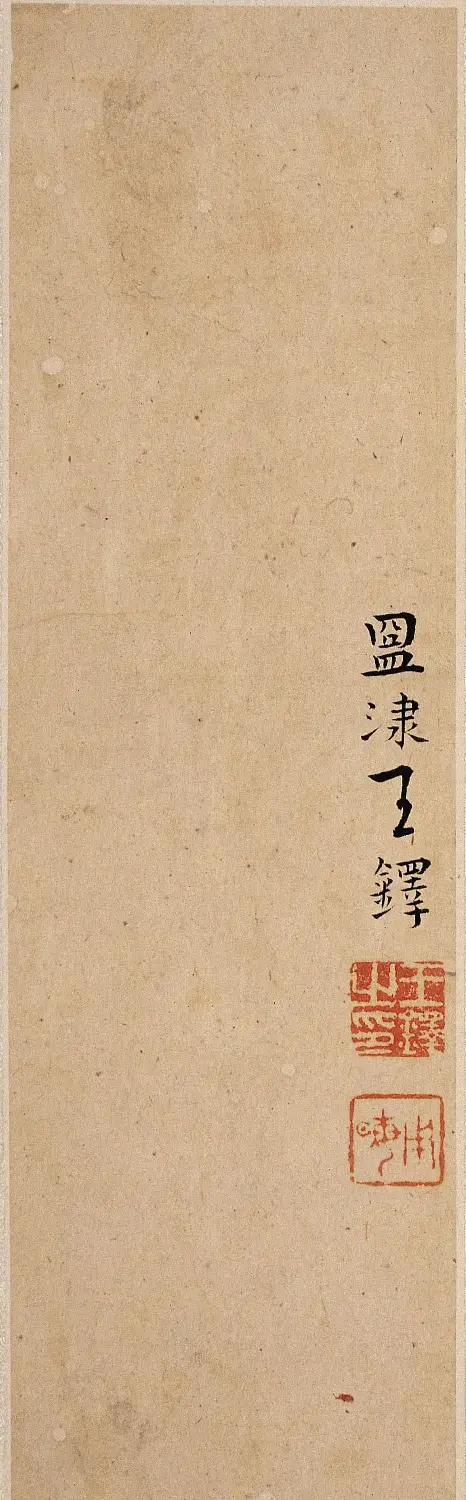 盟津王鐸
王鐸之印